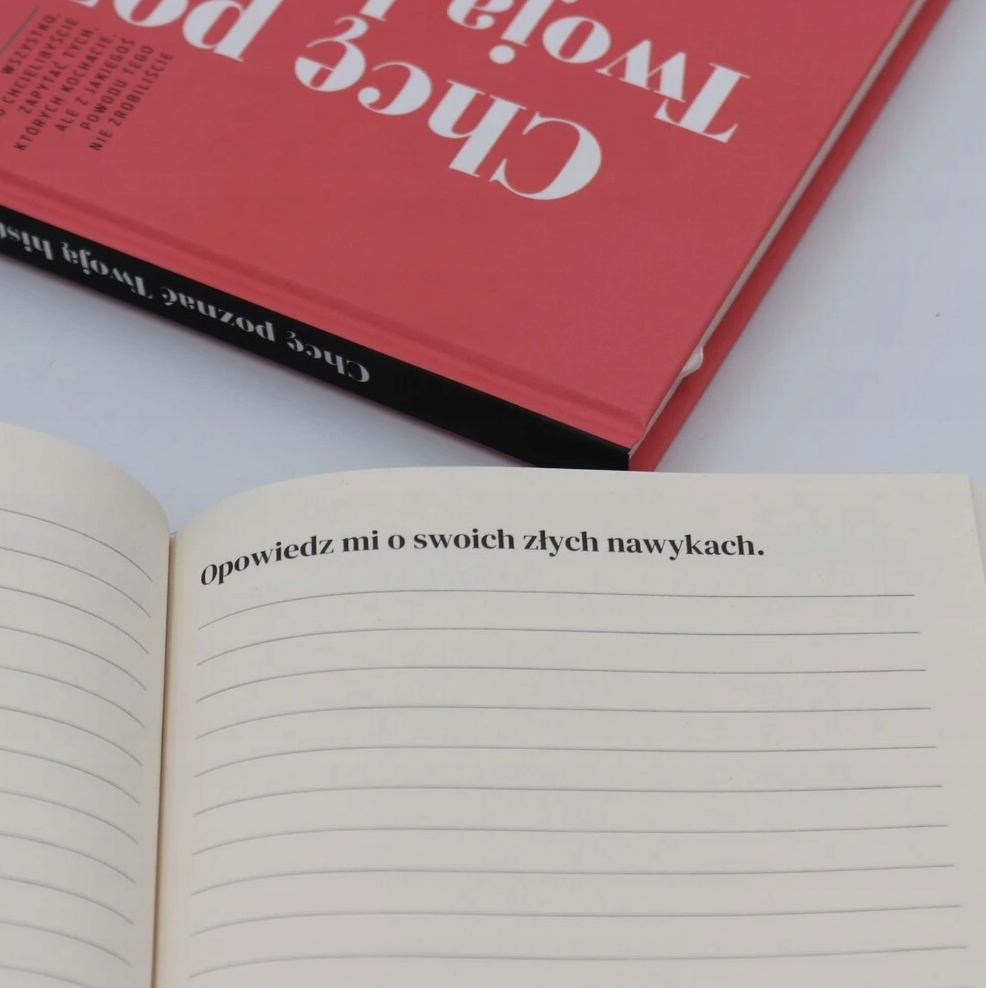 Chcę poz
Twoją
WSZYSTKO,
O CHCIELIBYŚCIE
ZAPYTAĆ TYCH,
KTÓRYCH KOCHACIE,
ALE Z JAKIEGOŚ
POWODU TEGO
NIE ZROBILIŚCIE
Chcę poznać Twoją hist
Opowiedz mi o swoich złych nawykach.